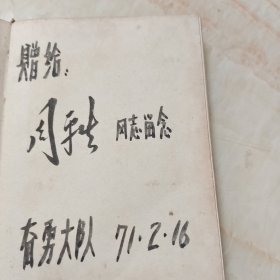 赠给：
周秋 同志留念
奋勇大队 71·2·16